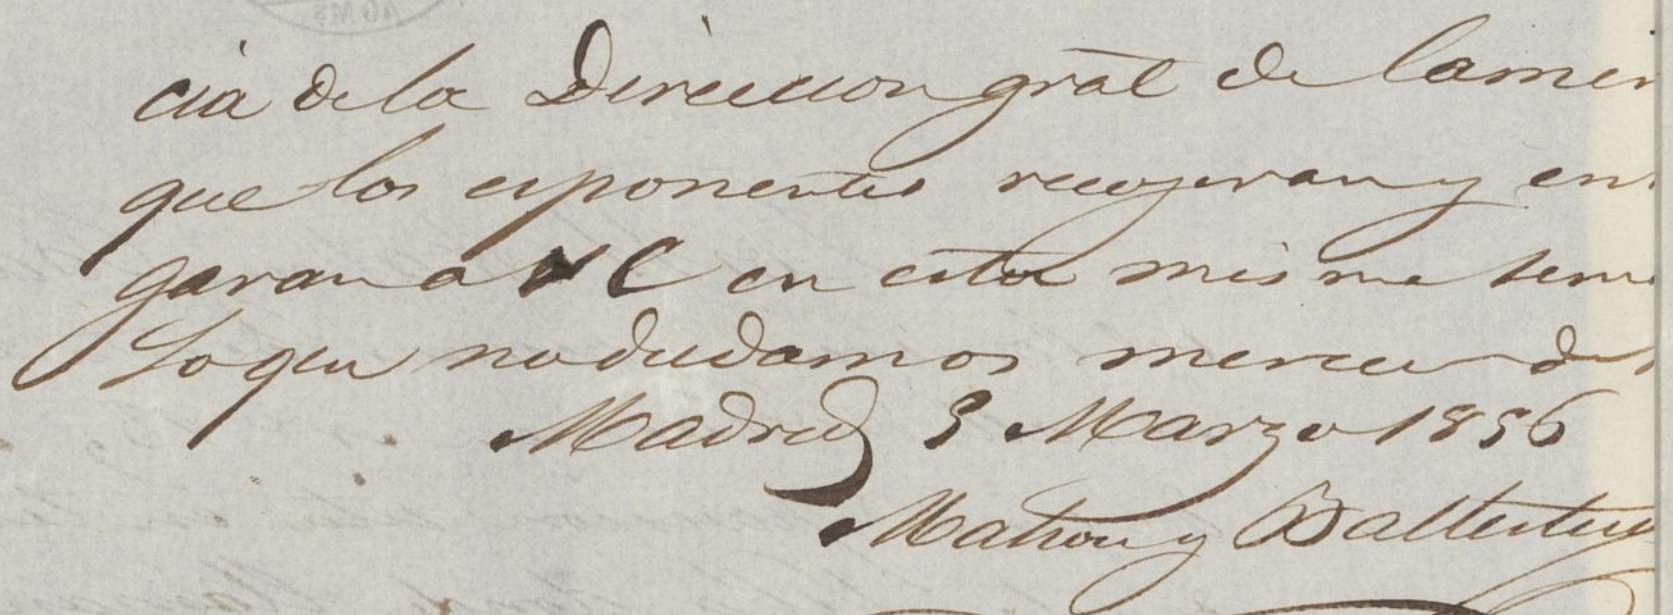 cia de la Direccion gral de la mer
que los esponentes recojeran y en
garan a V E en esta misma sem
Lo que no dudamos merecer de
Madrid 3 Marzo 1856
y